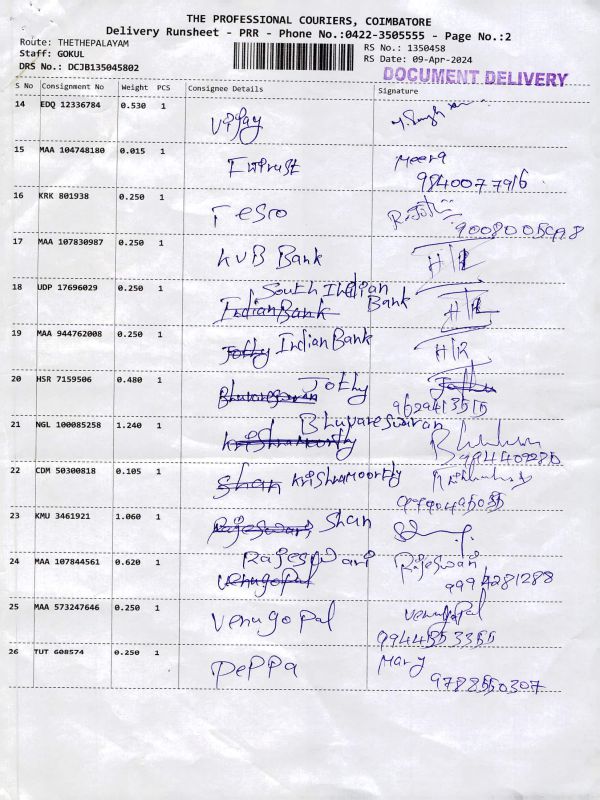 THE PROFESSIONAL COURIERS, COIMBATORE
Delivery Runsheet - PRR - Phone No.:0422-3505555 - Page No.:2
Route: THETHEPALAYAM
RS No.: 1350458
Staff: GOKUL
RS Date: 09-Apr-2024
DRS No.: DCJB135045802
DOCUMENT DELIVERY
S No Consignment No Weight PCS Consignee Details Signature
14 EDQ 12336784 0.530 1
Vijay
15 MAA 104748180 0.015 1 Meera
9840077916
16 KRK 801938 0.250 1
Tesio
17 MAA 107830987 0.250 1
KVB Bank H/R
18 UDP 17696029 0.250 1 South Indian Bank
Indian Bank H/R
19 MAA 944762008 0.250 1
Jothy Indian Bank H/R
20 HSR 7159506 0.480 1
Bhuvaneswaran Jothy Jothy
9629413515
21 NGL 100085258 1.240 1 Bhuvareswaran
Krishnamoorthy
22 CDM 50300818 0.105 1
Shan Krishnamoorthy
23 KMU 3461921 1.060 1
Rajeswari, Shan
24 MAA 107844561 0.620 1 Rajeswari Rajeswari
Venugopal 9994281288
25 MAA 573247646 0.250 1
Venugopal Venugopal
9944553355
26 TUT 608574 0.250 1 Mary
Peppa 9788550307